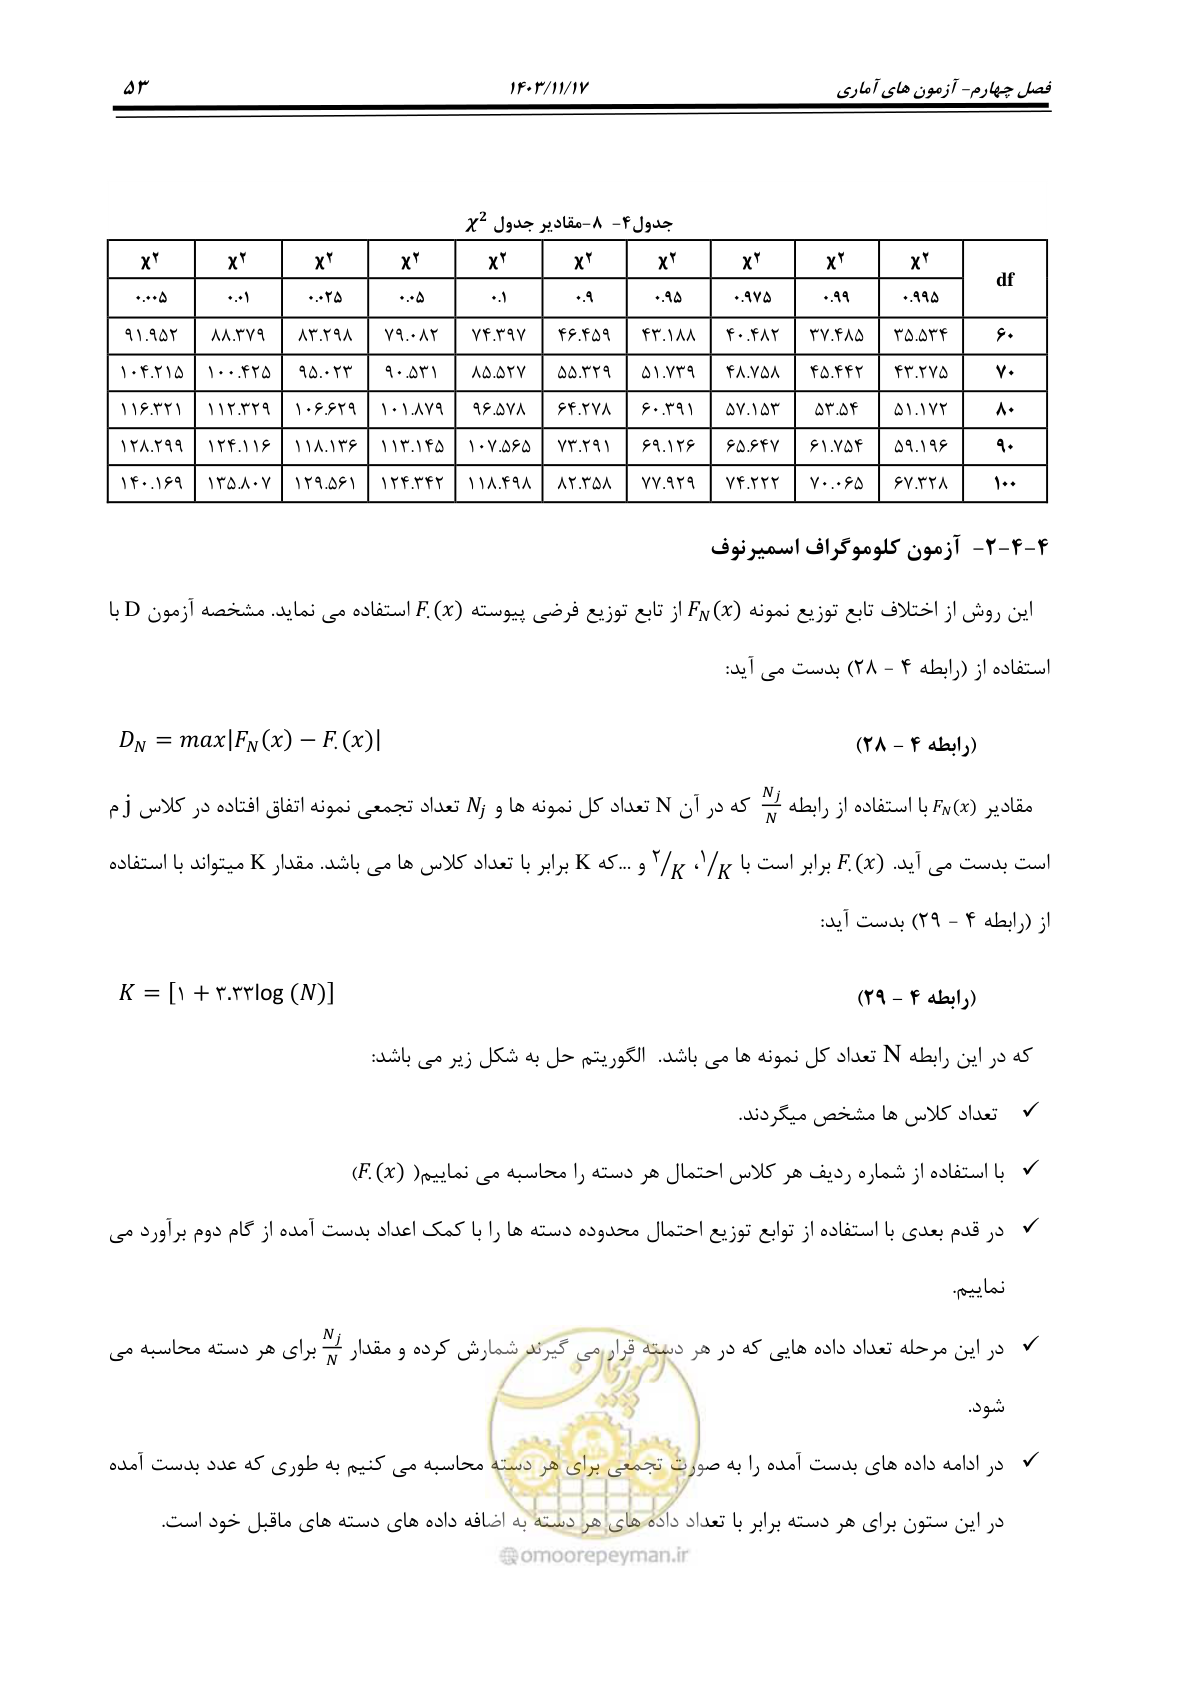 فصل چهارم- آزمون های آماری ۱۴۰۳/۱۱/۱۷ ۵۳
جدول۴- ۸-مقادیر جدول χ²
df χ۲ χ۲ χ۲ χ۲ χ۲ χ۲ χ۲ χ۲ χ۲ χ۲
۰.۹۹۵ ۰.۹۹ ۰.۹۷۵ ۰.۹۵ ۰.۹ ۰.۱ ۰.۰۵ ۰.۰۲۵ ۰.۰۱ ۰.۰۰۵
۶۰ ۳۵.۵۳۴ ۳۷.۴۸۵ ۴۰.۴۸۲ ۴۳.۱۸۸ ۴۶.۴۵۹ ۷۴.۳۹۷ ۷۹.۰۸۲ ۸۳.۲۹۸ ۸۸.۳۷۹ ۹۱.۹۵۲
۷۰ ۴۳.۲۷۵ ۴۵.۴۴۲ ۴۸.۷۵۸ ۵۱.۷۳۹ ۵۵.۳۲۹ ۸۵.۵۲۷ ۹۰.۵۳۱ ۹۵.۰۲۳ ۱۰۰.۴۲۵ ۱۰۴.۲۱۵
۸۰ ۵۱.۱۷۲ ۵۳.۵۴ ۵۷.۱۵۳ ۶۰.۳۹۱ ۶۴.۲۷۸ ۹۶.۵۷۸ ۱۰۱.۸۷۹ ۱۰۶.۶۲۹ ۱۱۲.۳۲۹ ۱۱۶.۳۲۱
۹۰ ۵۹.۱۹۶ ۶۱.۷۵۴ ۶۵.۶۴۷ ۶۹.۱۲۶ ۷۳.۲۹۱ ۱۰۷.۵۶۵ ۱۱۳.۱۴۵ ۱۱۸.۱۳۶ ۱۲۴.۱۱۶ ۱۲۸.۲۹۹
۱۰۰ ۶۷.۳۲۸ ۷۰.۰۶۵ ۷۴.۲۲۲ ۷۷.۹۲۹ ۸۲.۳۵۸ ۱۱۸.۴۹۸ ۱۲۴.۳۴۲ ۱۲۹.۵۶۱ ۱۳۵.۸۰۷ ۱۴۰.۱۶۹
۴-۴-۲- آزمون کلوموگراف اسمیرنوف
این روش از اختلاف تابع توزیع نمونه F_N(x) از تابع توزیع فرضی پیوسته F.(x) استفاده می نماید. مشخصه آزمون D با
استفاده از (رابطه ۴ – ۲۸) بدست می آید:
(رابطه ۴ – ۲۸) D_N = max|F_N(x) − F.(x)|
مقادیر F_N(x) با استفاده از رابطه N_j/N که در آن N تعداد کل نمونه ها و N_j تعداد تجمعی نمونه اتفاق افتاده در کلاس j م
است بدست می آید. F.(x) برابر است با ۱/K، ۲/K و ...که K برابر با تعداد کلاس ها می باشد. مقدار K میتواند با استفاده
از (رابطه ۴ – ۲۹) بدست آید:
(رابطه ۴ – ۲۹) K = [۱ + ۳.۳۳log (N)]
که در این رابطه N تعداد کل نمونه ها می باشد. الگوریتم حل به شکل زیر می باشد:
✓ تعداد کلاس ها مشخص میگردند.
✓ با استفاده از شماره ردیف هر کلاس احتمال هر دسته را محاسبه می نماییم( F.(x))
✓ در قدم بعدی با استفاده از توابع توزیع احتمال محدوده دسته ها را با کمک اعداد بدست آمده از گام دوم برآورد می
نماییم.
✓ در این مرحله تعداد داده هایی که در هر دسته قرار می گیرند شمارش کرده و مقدار N_j/N برای هر دسته محاسبه می
شود.
✓ در ادامه داده های بدست آمده را به صورت تجمعی برای هر دسته محاسبه می کنیم به طوری که عدد بدست آمده
در این ستون برای هر دسته برابر با تعداد داده های هر دسته به اضافه داده های دسته های ماقبل خود است.
امور پیمان
@omoorepeyman.ir